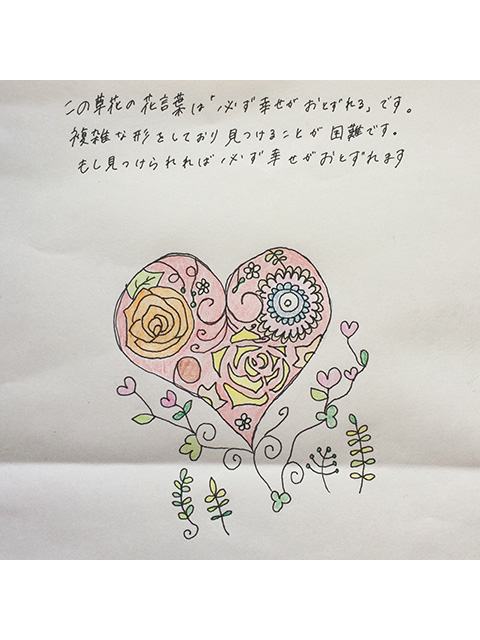 この草花の花言葉は「必ず幸せがおとずれる」です。
複雑な形をしており見つけることが困難です。
もし見つけられれば必ず幸せがおとずれます